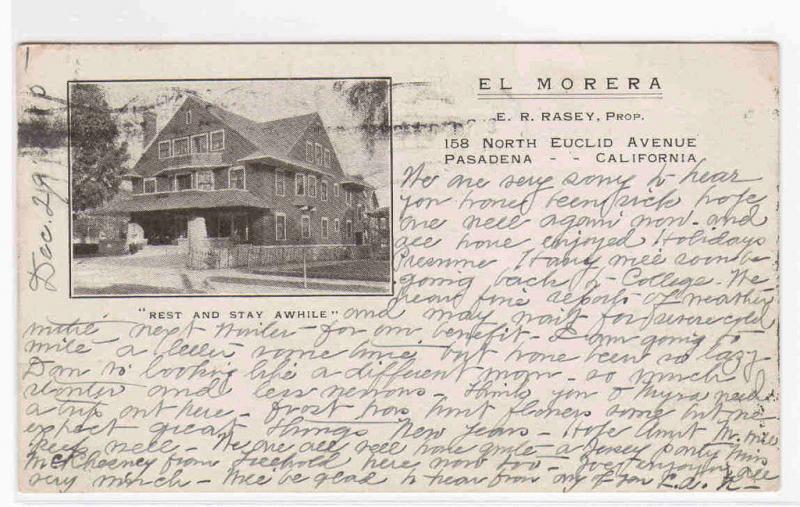 EL MORERA
E. R. RASEY, PROP.
158 NORTH EUCLID AVENUE
PASADENA - - CALIFORNIA
Dec. 29
"REST AND STAY AWHILE"
We are very sorry to hear
you have been sick hope
are well again now - and
all have enjoyed Holidays
Presume Harry will soon be
going back to College. We
hear fine reports of weather
and may wait for severe cold
until next Winter - for our benefit - I am going to
write a letter some time, but have been so lazy
looking like a different man - so much
and less nervous - think you & Myra need
a trip out here - Frost has hurt flowers some but we
expect great things New Years - Hope Aunt M. will
keep well - We are all well have quite a Jersey party Miss
McChesney from Freehold here now too -
very much - Will be glad to hear from any of you